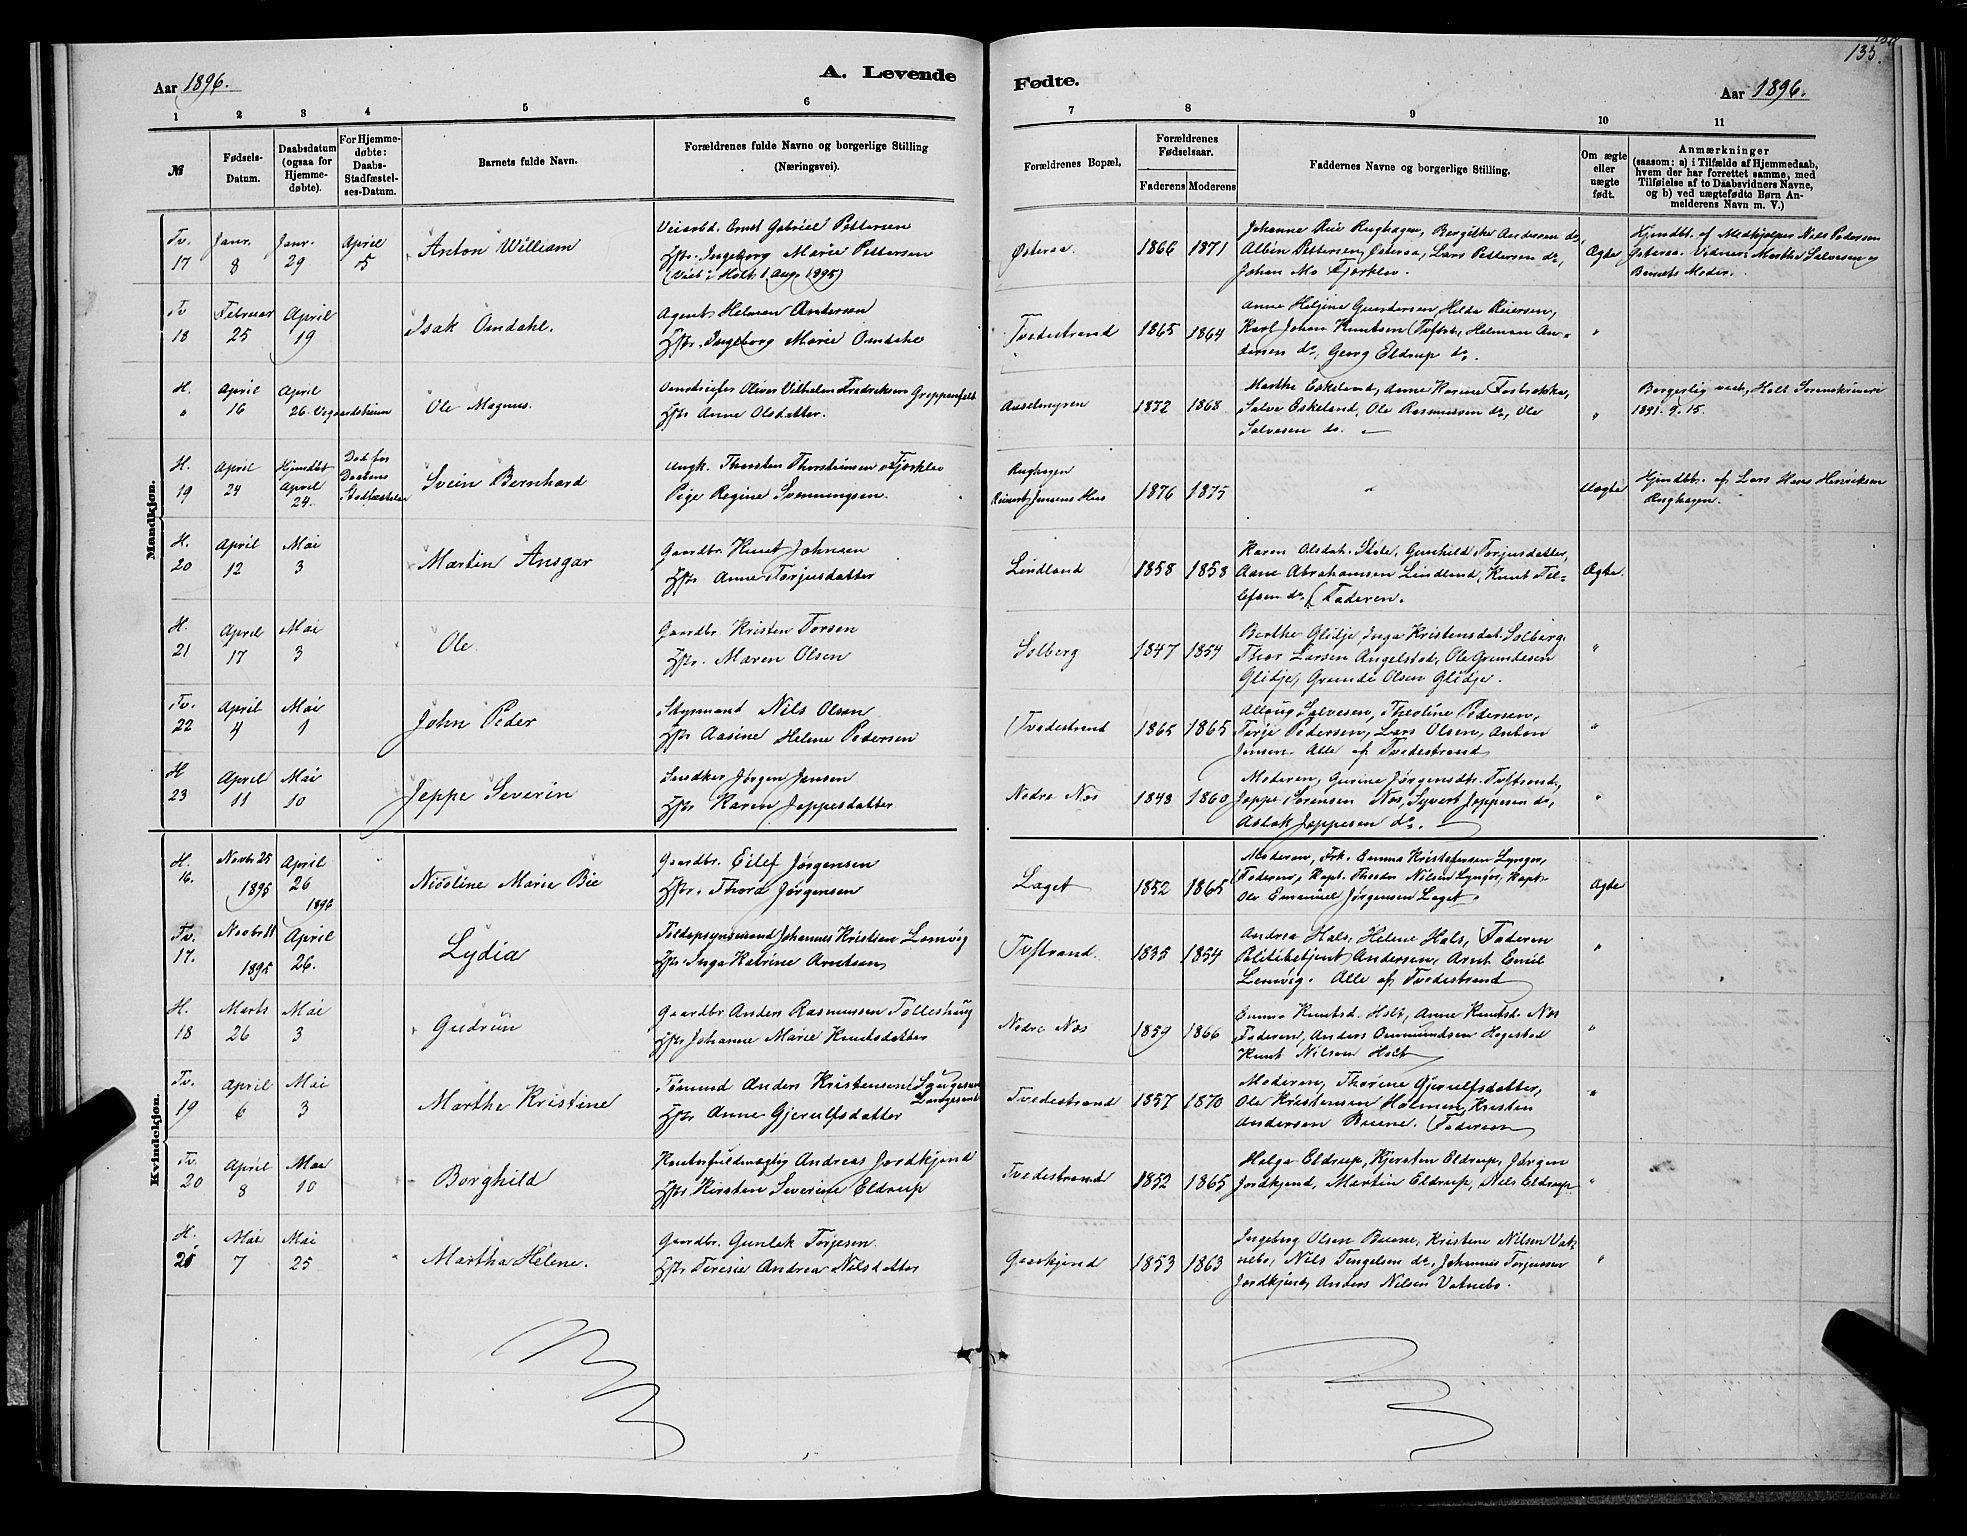 135.
Aar 1896.
A. Levende
Fødte.
Aar 1896.
1 2 3 4 5 6
7 8 9 10 11
№
Fødsels-
Datum.
Daabsdatum
(ogsaa for
Hjemme-
døbte).
For Hjemme-
døbte:
Daabs-
Stadfæstel-
ses-Datum.
Barnets fulde Navn.
Forældrenes fulde Navne og borgerlige Stilling
(Næringsvei).
Forældrenes Bopæl.
Forældrenes
Fødselsaar.
Faderens Moderens
Faddernes Navne og borgerlige Stilling.
Om ægte
eller
uægte
født.
Anmærkninger
(saasom: a) i Tilfælde af Hjemmedaab,
hvem der har forrettet samme, med
Tilføielse af to Daabsvidners Navne,
og b) ved uægtefødte Børn An-
melderens Navn m. V.)
Mandkjøn.
Tv.
17
Janr.
8
Janr.
29
April
5
Anton William
Veiarbd. Ernst Gabriel Pettersen
Hstr. Ingeborg Marie Pettersen
(Viet i Holt 1 Aug. 1895)
Østeraa
1866 1871
Johanne Reie Rughagen, Bergithe Andersen do,
Albin Pettersen, Østeraa, Lars Pettersen do,
Johan Mo
Ægte
Hjmdbt. af Medhjelper Nils Pedersen
Østeraa. Vidner: Marthe Salvesen og
Barnets Moder.
Tv
18
Februar
25
April
19
Isak Omdahl.
Agent Helman Andersen
Hstr. Ingeborg Marie Omdahl
Tvedestrand
1865 1864
Anne Heljine Gundersen, Helda Reiersen,
Karl Johan Knutsen Tvstr., Helman An-
dersen do, Georg Eldrup do.
"
H.
"
April
16
April
26. Vegaardsheien
Ole Magnus.
Oliver Vilhelm Fredriksen Greppenfeld
Hstr Anne Olsdatter.
Anselmyren
1872 1868
Marthe Eskeland, Anne Karine Fosbrække,
Salve Eskeland, Ole Rasmussen do, Ole
Salvesen do.
"
Borgerlig viet, Holt Sorenskriveri
1891. 9/15.
H.
19
April
24
Hjmdbt
April
24.
Død før
Daabens
Stadfæstelse
Svein Bernhard
Ungk. Thorsten Thorsteinsen
Pige Regine Svenningsen.
Rughagen
Jensens Hus
1876 1875
"
Uægte
Hjmdbt. af Lars Hans Henriksen
Rughagen.
H.
20
April
12
Mai
3
Martin Ansgar
Gaardbr. Knut Johnsen
Hstr. Anne Torjusdatter
Lindland
1858 1858
Karen Olsdat. Skole, Gunhild Torjusdatter,
Aane Abrahamsen Lindland, Knut Til-
lefsen do, Faderen.
Ægte
H.
21
April
17
Mai
3
Ole
Gaardbr Kristen Torsen
Hstr. Maren Olsen
Solberg
1847 1854
Berthe Glidje, Inga Kristensdat. Solberg.
Thor Larsen Angelstad, Ole Grundesen
Glidje, Grunde Olsen Glidje.
"
Tv.
22
April
4
Mai
1
John Peder
Styrmand Nils Olsen
Hstr Aasine Helene Pedersen
Tvedestrand
1865 1865
Allaug Salvesen, Theoline Pedersen,
Terje Pedersen, Lars Olsen, Anton
Jensen. Alle af Tvedestrand
"
H
23
April
11
Mai
10
Jeppe Severin
Snedker Jørgen Jensen
Hstr Karen Jeppesdatter
Nedre Næs
1848 1860
Moderen, Gurine Jørgensdtr. Tvstrand,
Jeppe Sørensen Næs, Syvert Jeppesen do,
Aslak Jeppesen do.
"
Kvindekjøn.
H.
16.
Novbr 25
1895
April
26
1896
Nicoline Marie Bie
Gaardbr. Eilef Jørgensen
Hstr. Thora Jørgensen
Laget
1852 1865
Moderen, Frk. Emma Kristofersen Lyngør,
Faderen, Kapt. Theodor Nilsen Lyngør, Kapt.
Ole Emanuel Jørgensen Laget.
Ægte
Tv.
17.
Novbr 11
1895
April
26.
Lydia
Toldopsynsmand Johannes Kristian Lemvig
Hstr. Inga Katrine Arntsen
Tvstrand.
1835 1854
Andrea Hals, Helene Hals, Faderen
Politibetjent Andersen, Arnt Emil
Lemvig. Alle af Tvedestrand
"
H.
18
Marts
26
Mai
3
Gudrun
Gaardbr Anders Rasmussen Tolleshaug
Hstr Johanne Marie Knutsdatter
Nedre Næs
1859 1866
Emma Knutsd. Holt, Anne Knutsd. Næs
Faderen, Anders Ommundsen Hegestad
Knut Nilsen Holt
"
Tv.
19
April
6
Mai
3
Marthe Kristine
Tømmd Anders Kristensen
Hstr Anne Gjerulfsdatter
Tvedestrand
1857 1870
Moderen, Thorine Gjerulfsdatter,
Ole Kristensen Holmen, Kristen
Andersen Buene. Faderen
"
Tv.
20
April
8
Mai
10
Borghild
Andreas Jordkjend
Hstr Kirsten Severine Eldrup
Tvedestrand
1852 1865
Helga Eldrup, Kjersten Eldrup, Jørgen
Jordkjend, Martin Eldrup, Nils Eldrup
"
H.
21
Mai
7
Mai
25
Martha Helene.
Gaardbr. Gunlek Torjesen.
Hstr Terese Andrea Nilsdatter
Goaskjend
1853 1863
Ingeborg Olsen Buene, Kristene Nilsen Vat-
nebo, Nils Tengelsen do, Johannes Torjussen
Jordkjend, Anders Nilsen Vatnebo.
"